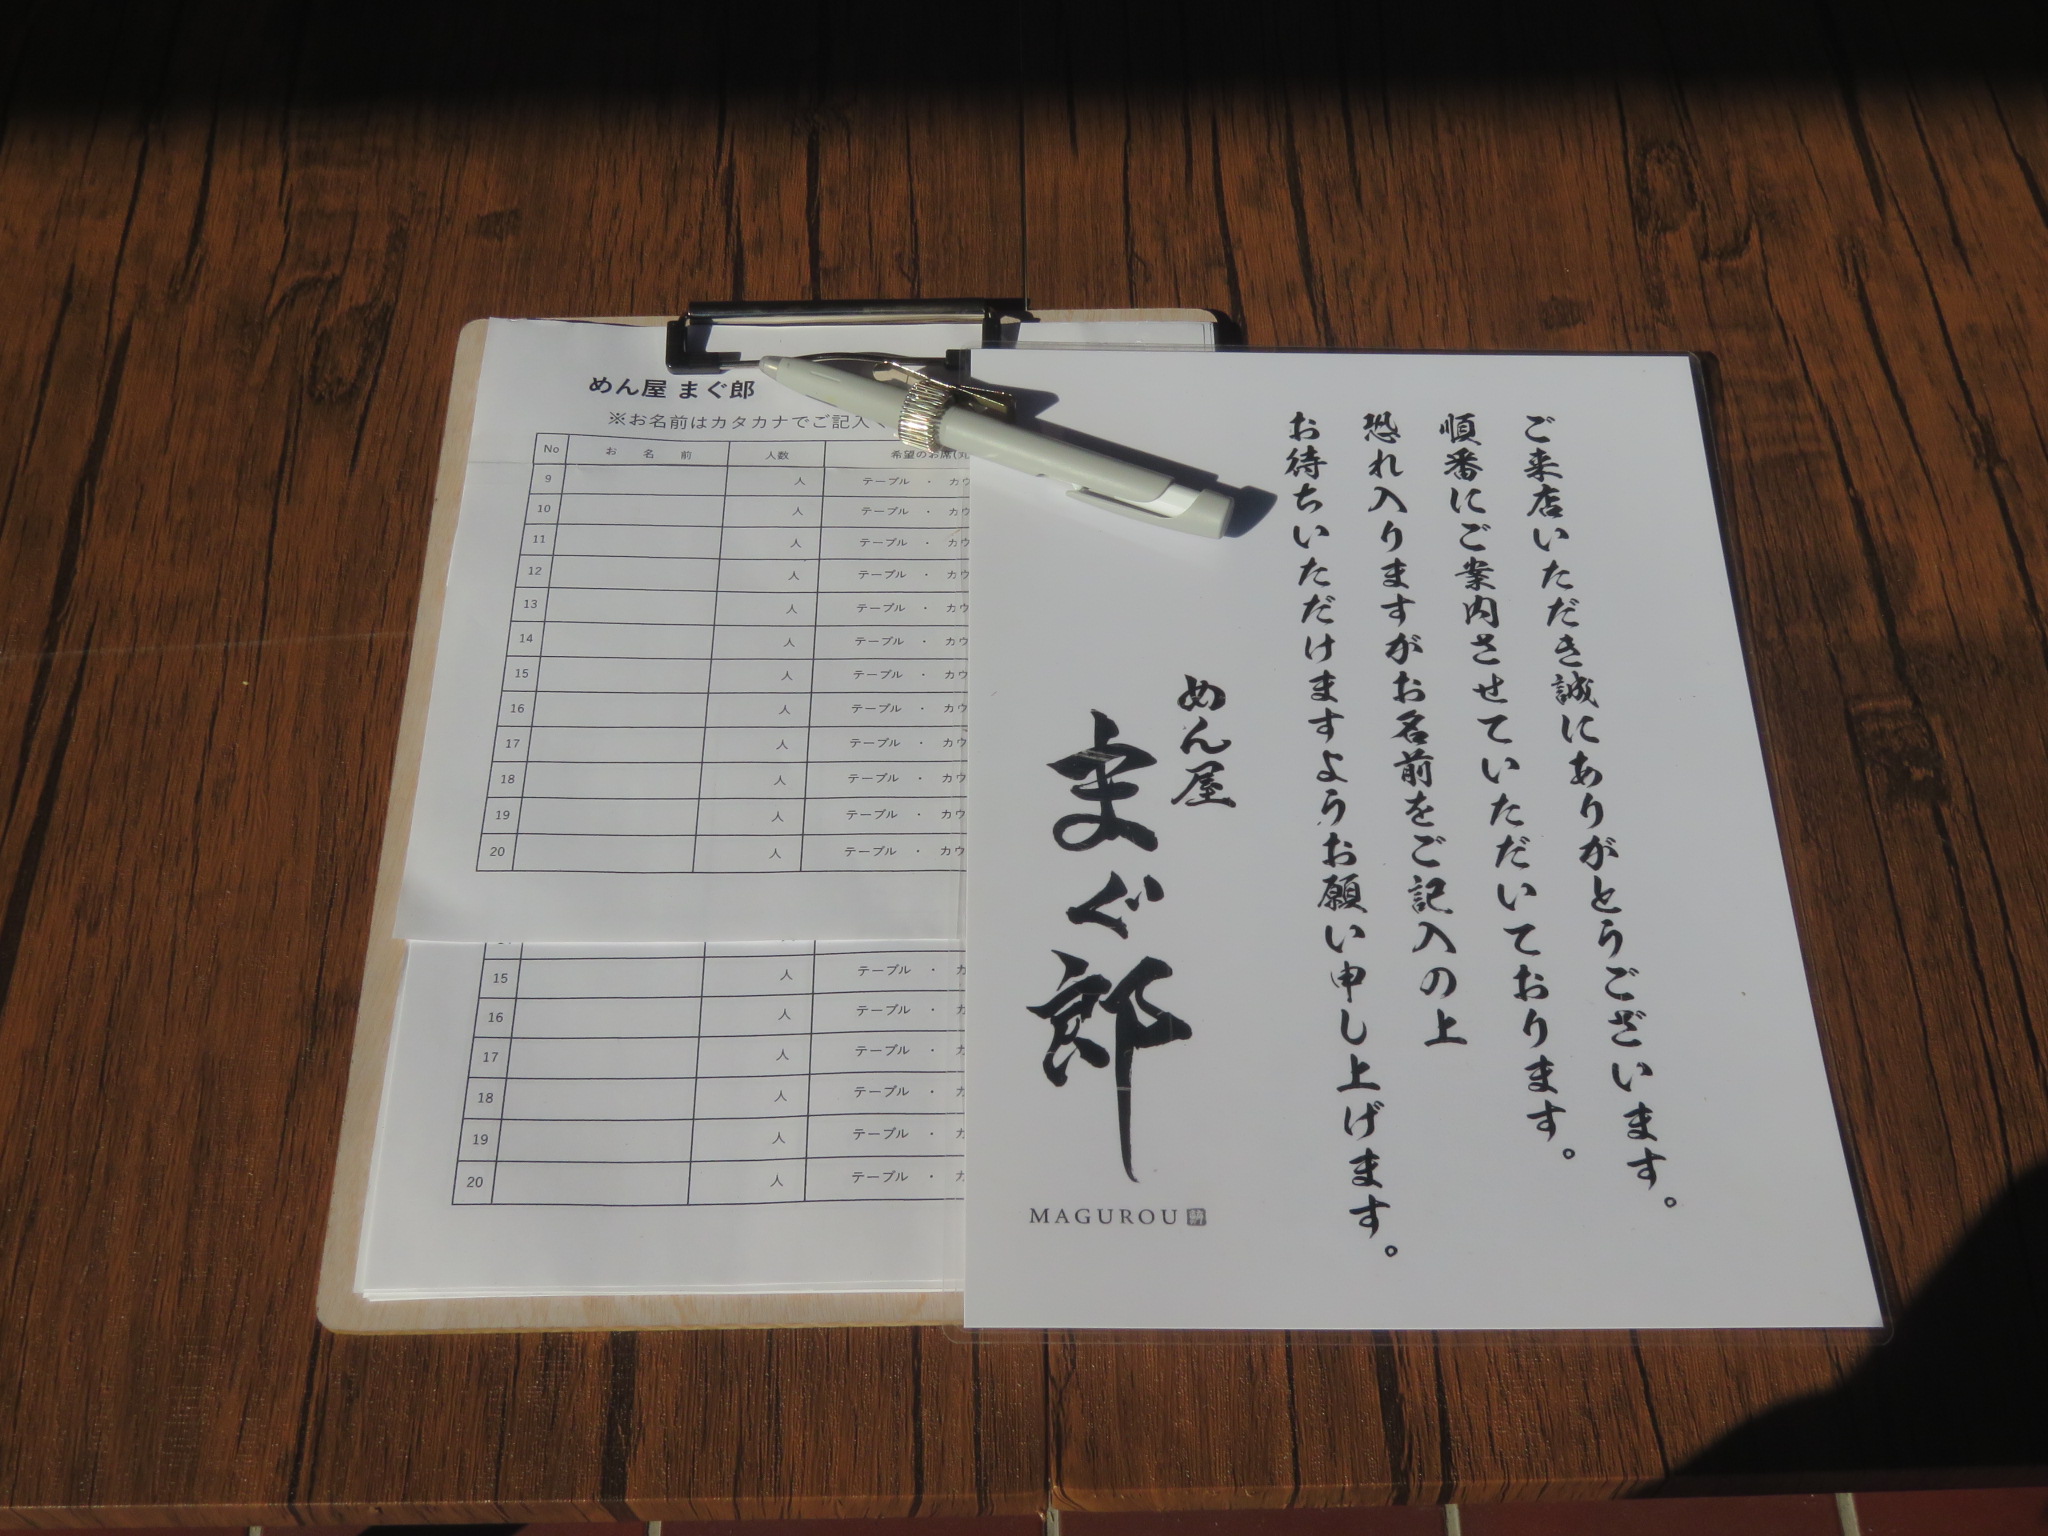 めん屋 まぐ郎
※お名前はカタカナでご記入
No お名前 人数 希望のお席
9 人 テーブル ・ カウ
10 人 テーブル ・ カウ
11 人 テーブル ・ カウ
12 人 テーブル ・ カウ
13 人 テーブル ・ カウ
14 人 テーブル ・ カウ
15 人 テーブル ・ カウ
16 人 テーブル ・ カウ
17 人 テーブル ・ カウ
18 人 テーブル ・ カウ
19 人 テーブル ・ カウ
20 人 テーブル ・ カウ
15 人 テーブル ・ カ
16 人 テーブル ・ カ
17 人 テーブル ・ カ
18 人 テーブル ・ カ
19 人 テーブル ・ カ
20 人 テーブル ・ カ
ご来店いただき誠にありがとうございます。
順番にご案内させていただいております。
恐れ入りますがお名前をご記入の上
お待ちいただけますようお願い申し上げます。
めん屋
まぐ郎
MAGUROU